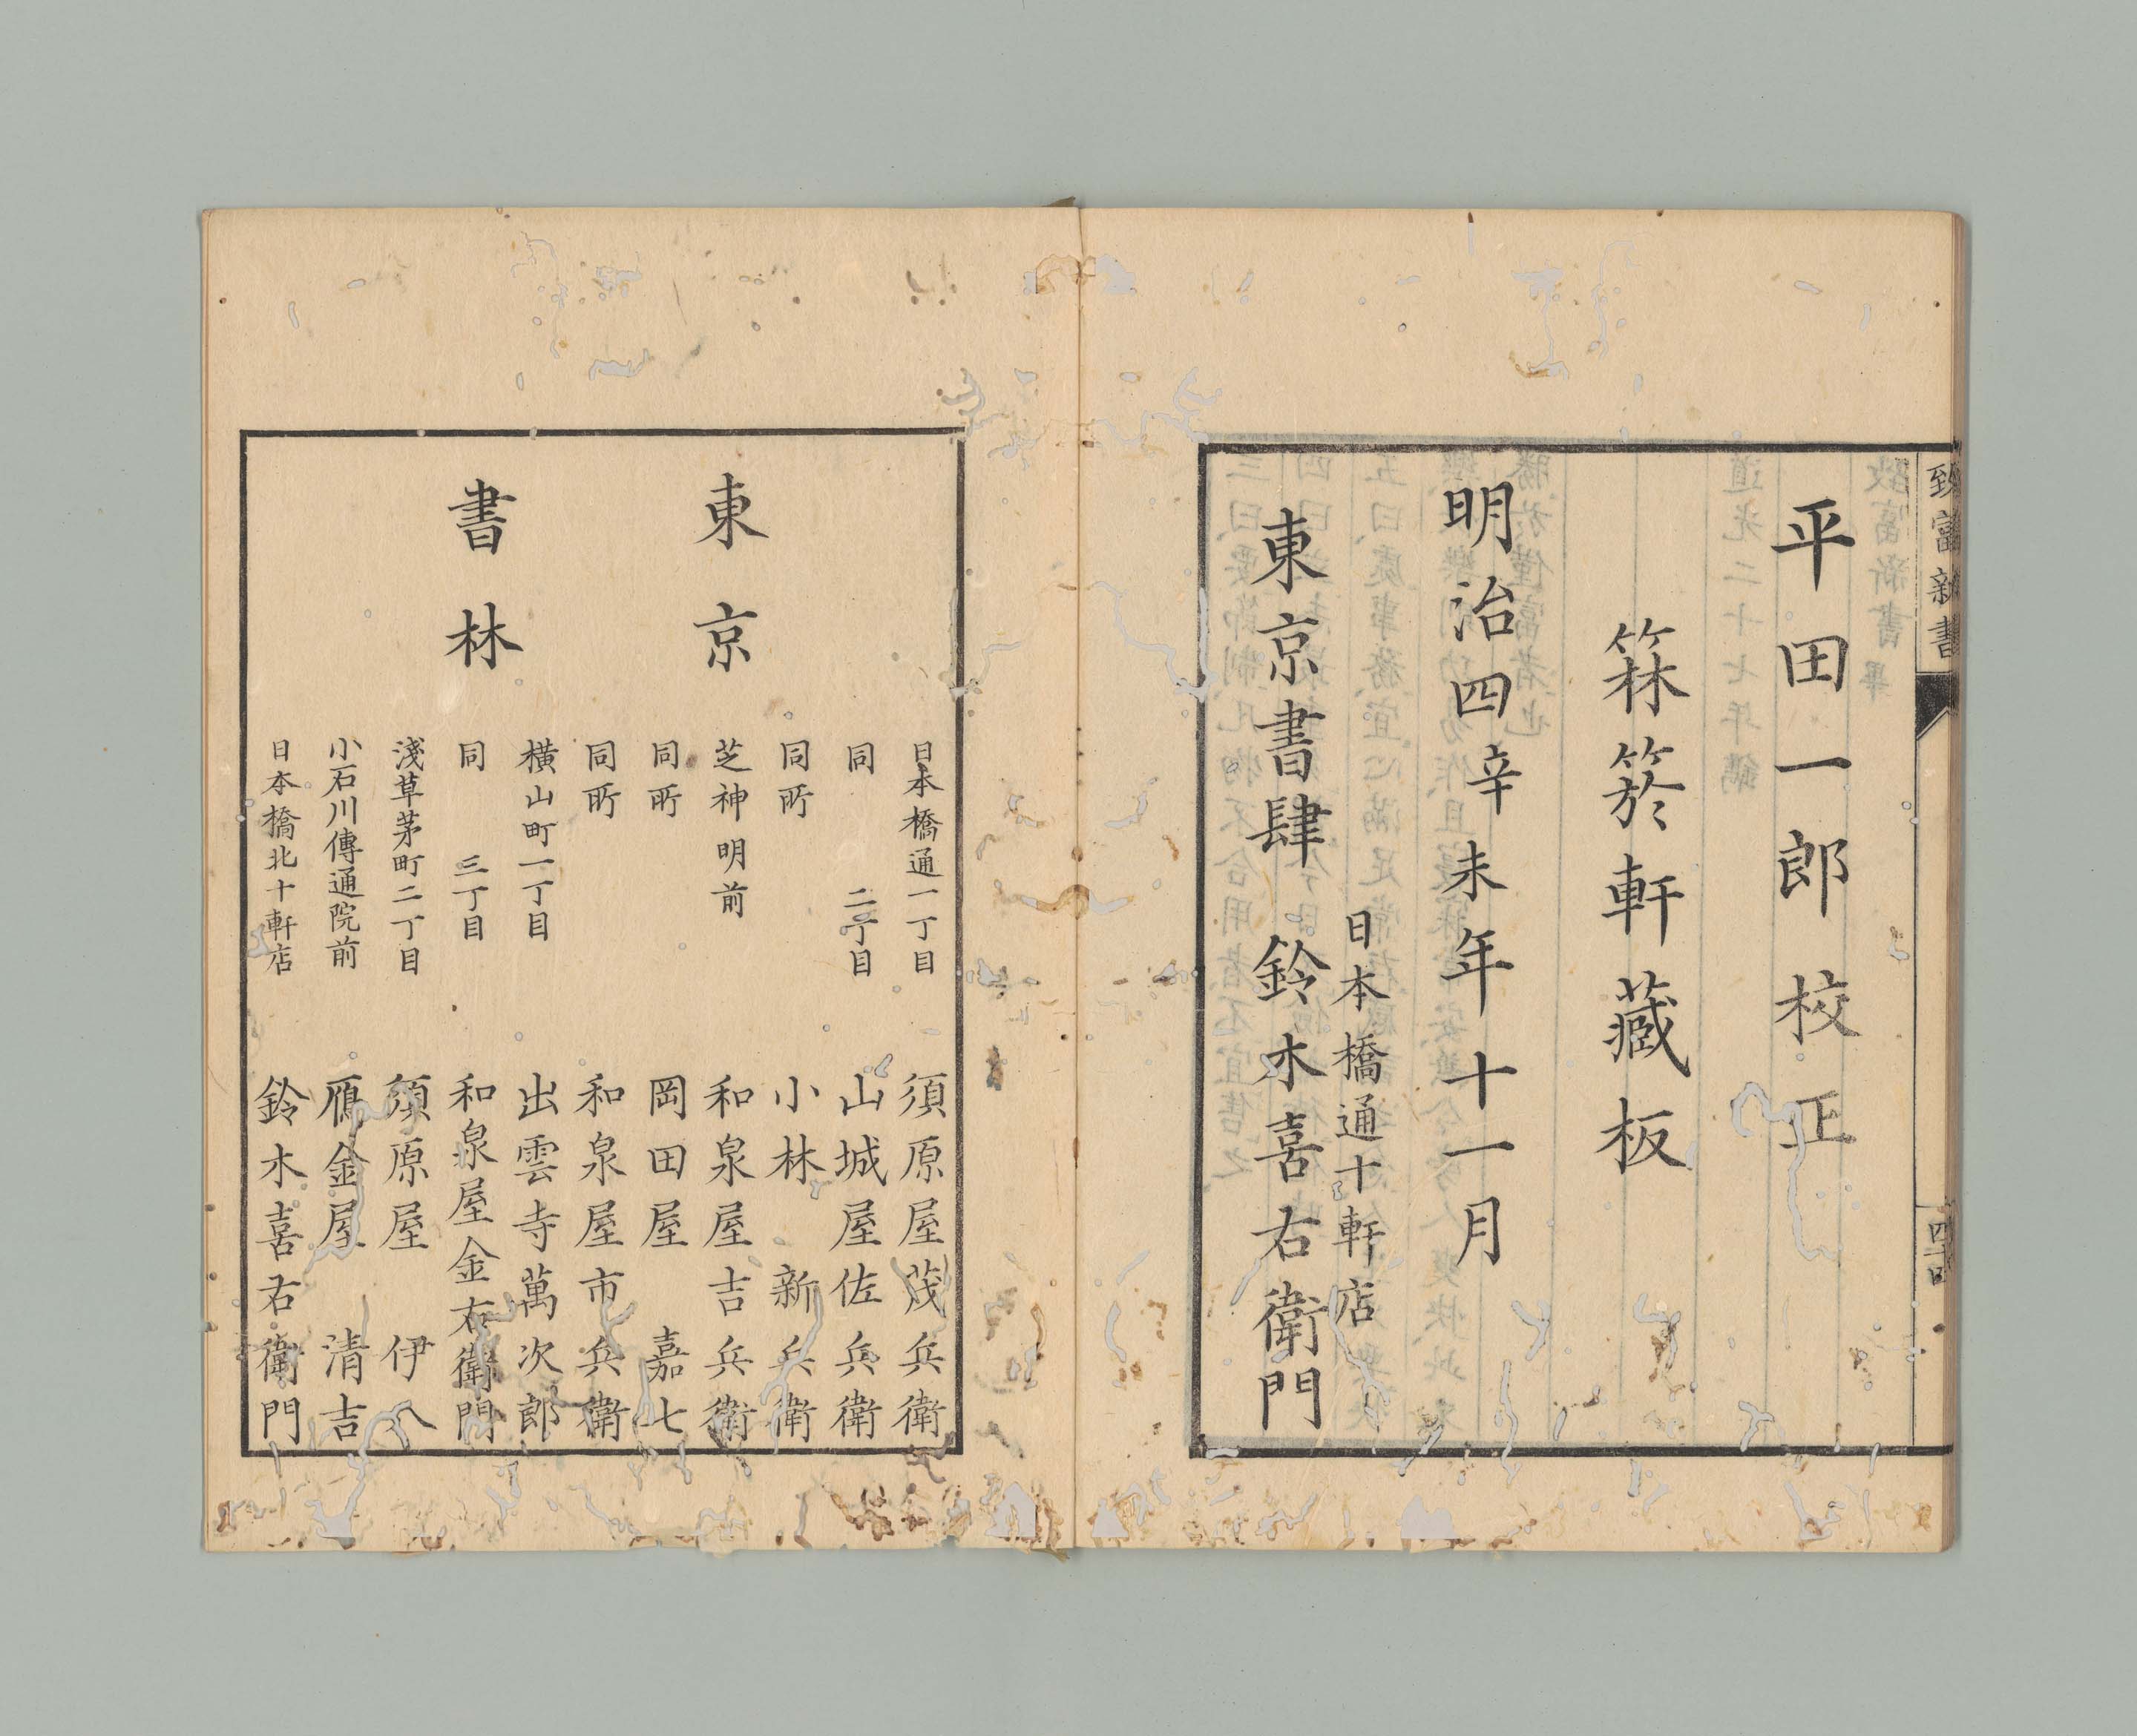 致富新書
四十四
平田一郎校正
箖箊軒藏板
明治四辛未年十一月
日本橋通十軒店
東京書肆 鈴木喜右衛門
東京
書林
日本橋通一丁目 須原屋茂兵衛
同 二丁目 山城屋佐兵衛
同所 小林新兵衛
芝神明前 和泉屋吉兵衛
同所 岡田屋嘉七
同所 和泉屋市兵衛
橫山町一丁目 出雲寺萬次郎
同 三丁目 和泉屋金右衛門
淺草茅町二丁目 須原屋伊八
小石川傳通院前 鴈金屋清吉
日本橋北十軒店 鈴木喜右衛門